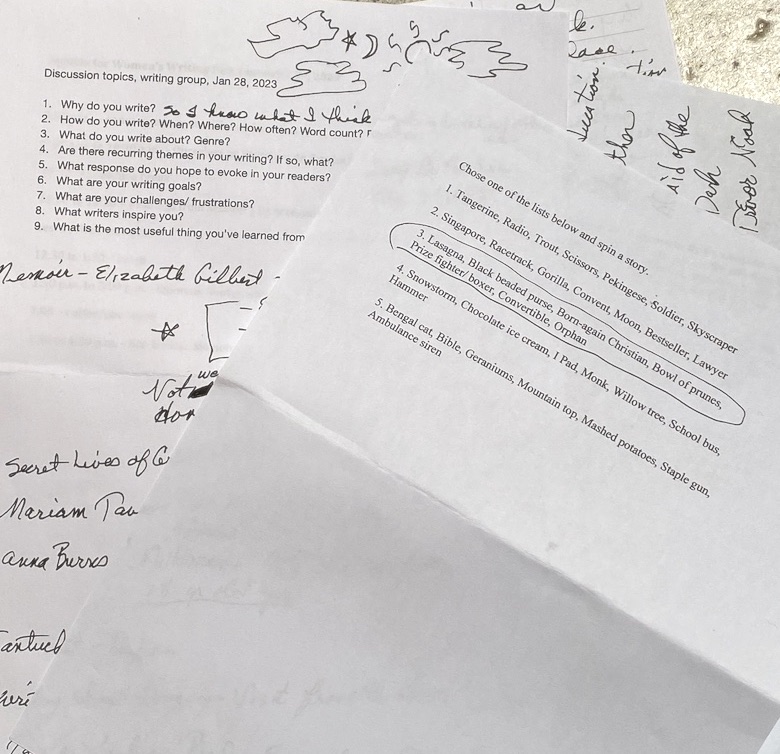 Discussion topics, writing group, Jan 28, 2023
1. Why do you write? So I know what I think
2. How do you write? When? Where? How often? Word count?
3. What do you write about? Genre?
4. Are there recurring themes in your writing? If so, what?
5. What response do you hope to evoke in your readers?
6. What are your writing goals?
7. What are your challenges/ frustrations?
8. What writers inspire you?
9. What is the most useful thing you've learned from
Memoir - Elizabeth Gilbert -
we
Not
Secret Lives of
Mariam
Anna Burns
Chose one of the lists below and spin a story.
1. Tangerine, Radio, Trout, Scissors, Pekingese, Soldier, Skyscraper
2. Singapore, Racetrack, Gorilla, Convent, Moon, Bestseller, Lawyer
3. Lasagna, Black beaded purse, Born-again Christian, Bowl of prunes,
Prize fighter/ boxer, Convertible, Orphan
4. Snowstorm, Chocolate ice cream, I Pad, Monk, Willow tree, School bus,
Hammer
5. Bengal cat, Bible, Geraniums, Mountain top, Mashed potatoes, Staple gun,
Ambulance siren
of the
Dark
Trevor Noah